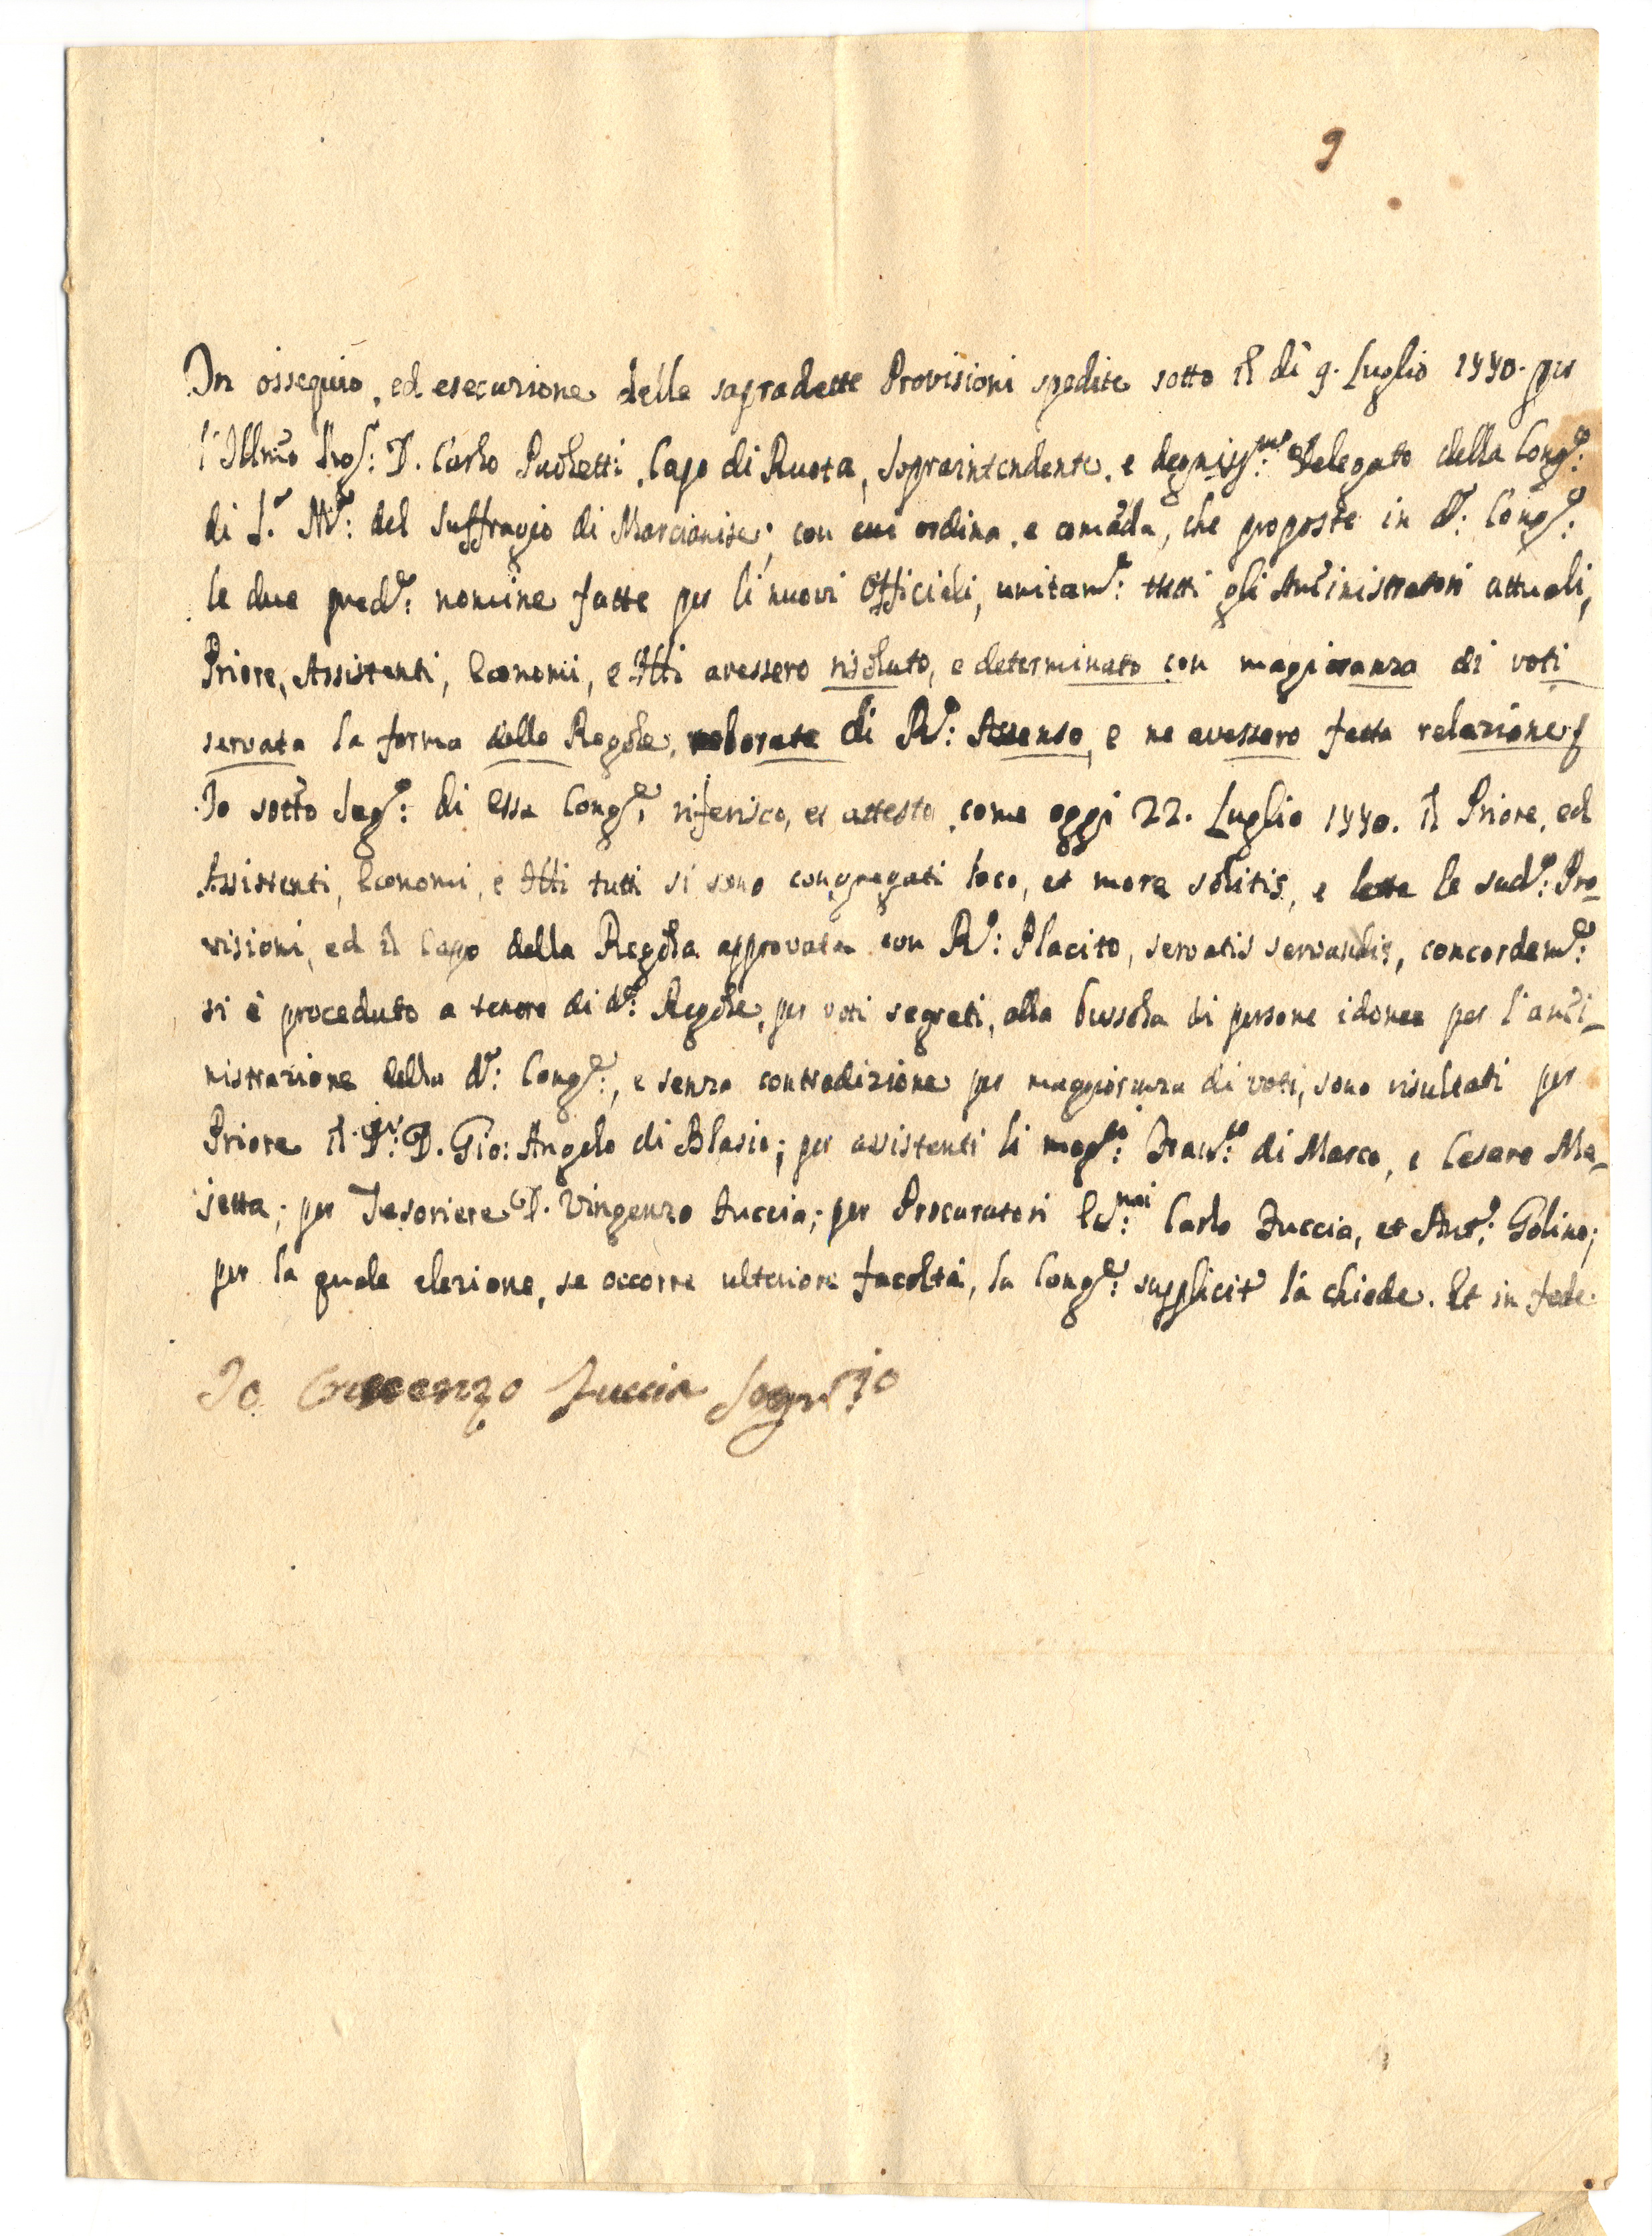 9
In ossequio, ed esecuzione delle sapradette Provisioni spedite sotto il dì 9. Luglio 1770. per
l'Illmo Sig: D. Carlo Paoletti, Capo di Ruota, Sopraintendente, e degniss:mo Delegato della Cong:e
di S.a M.a: del Suffragio di Marcianise; con cui ordina, e comāda, che proposte in d.a: Cong:e
le due pred.e: nomine fatte per li nuovi Officiali, unitam.e: tutti gli Am̃inistratori attuali,
Priore, Assistenti, Economi, e Alti avessero risoluto, e determinato con magioranza di voti
servata la forma delle Regole, roborate di R.o: Assenso, e ne avessero fatta relazione
Io sotto Seg.o: di essa Cong:e riferisco, et attesto, come oggi 22. Luglio 1770. il Priore, ed
Assistenti, Economi, e Alti tutti si sono congregati loco, et more solitis, e lette le sud.e: Pro-
visioni, ed il Capo della Regola approvata con R.o: Placito, servatis servandis, concordem.e:
si è proceduto a tenore di d.e: Regole, per voti segreti, alla bussola di persone idonee per l'am̃i-
nistrazione della d.a: Cong:e, e senza contradizione per maggioranza di voti, sono risultati per
Priore il D.r: D. Gio: Angelo di Blasio; per assistenti li mag:ci Fran:co di Marco, e Cesare Ma-
jetta; per Tesoriere D. Vingenzo Zuccia; per Procuratori Carlo Zuccia, et Ant.o: Golino;
per la quale elezione, se occorre ulteriore facoltà, la Cong:e supplicit la chiede. Et in fede
Io Zuccia Segr:io